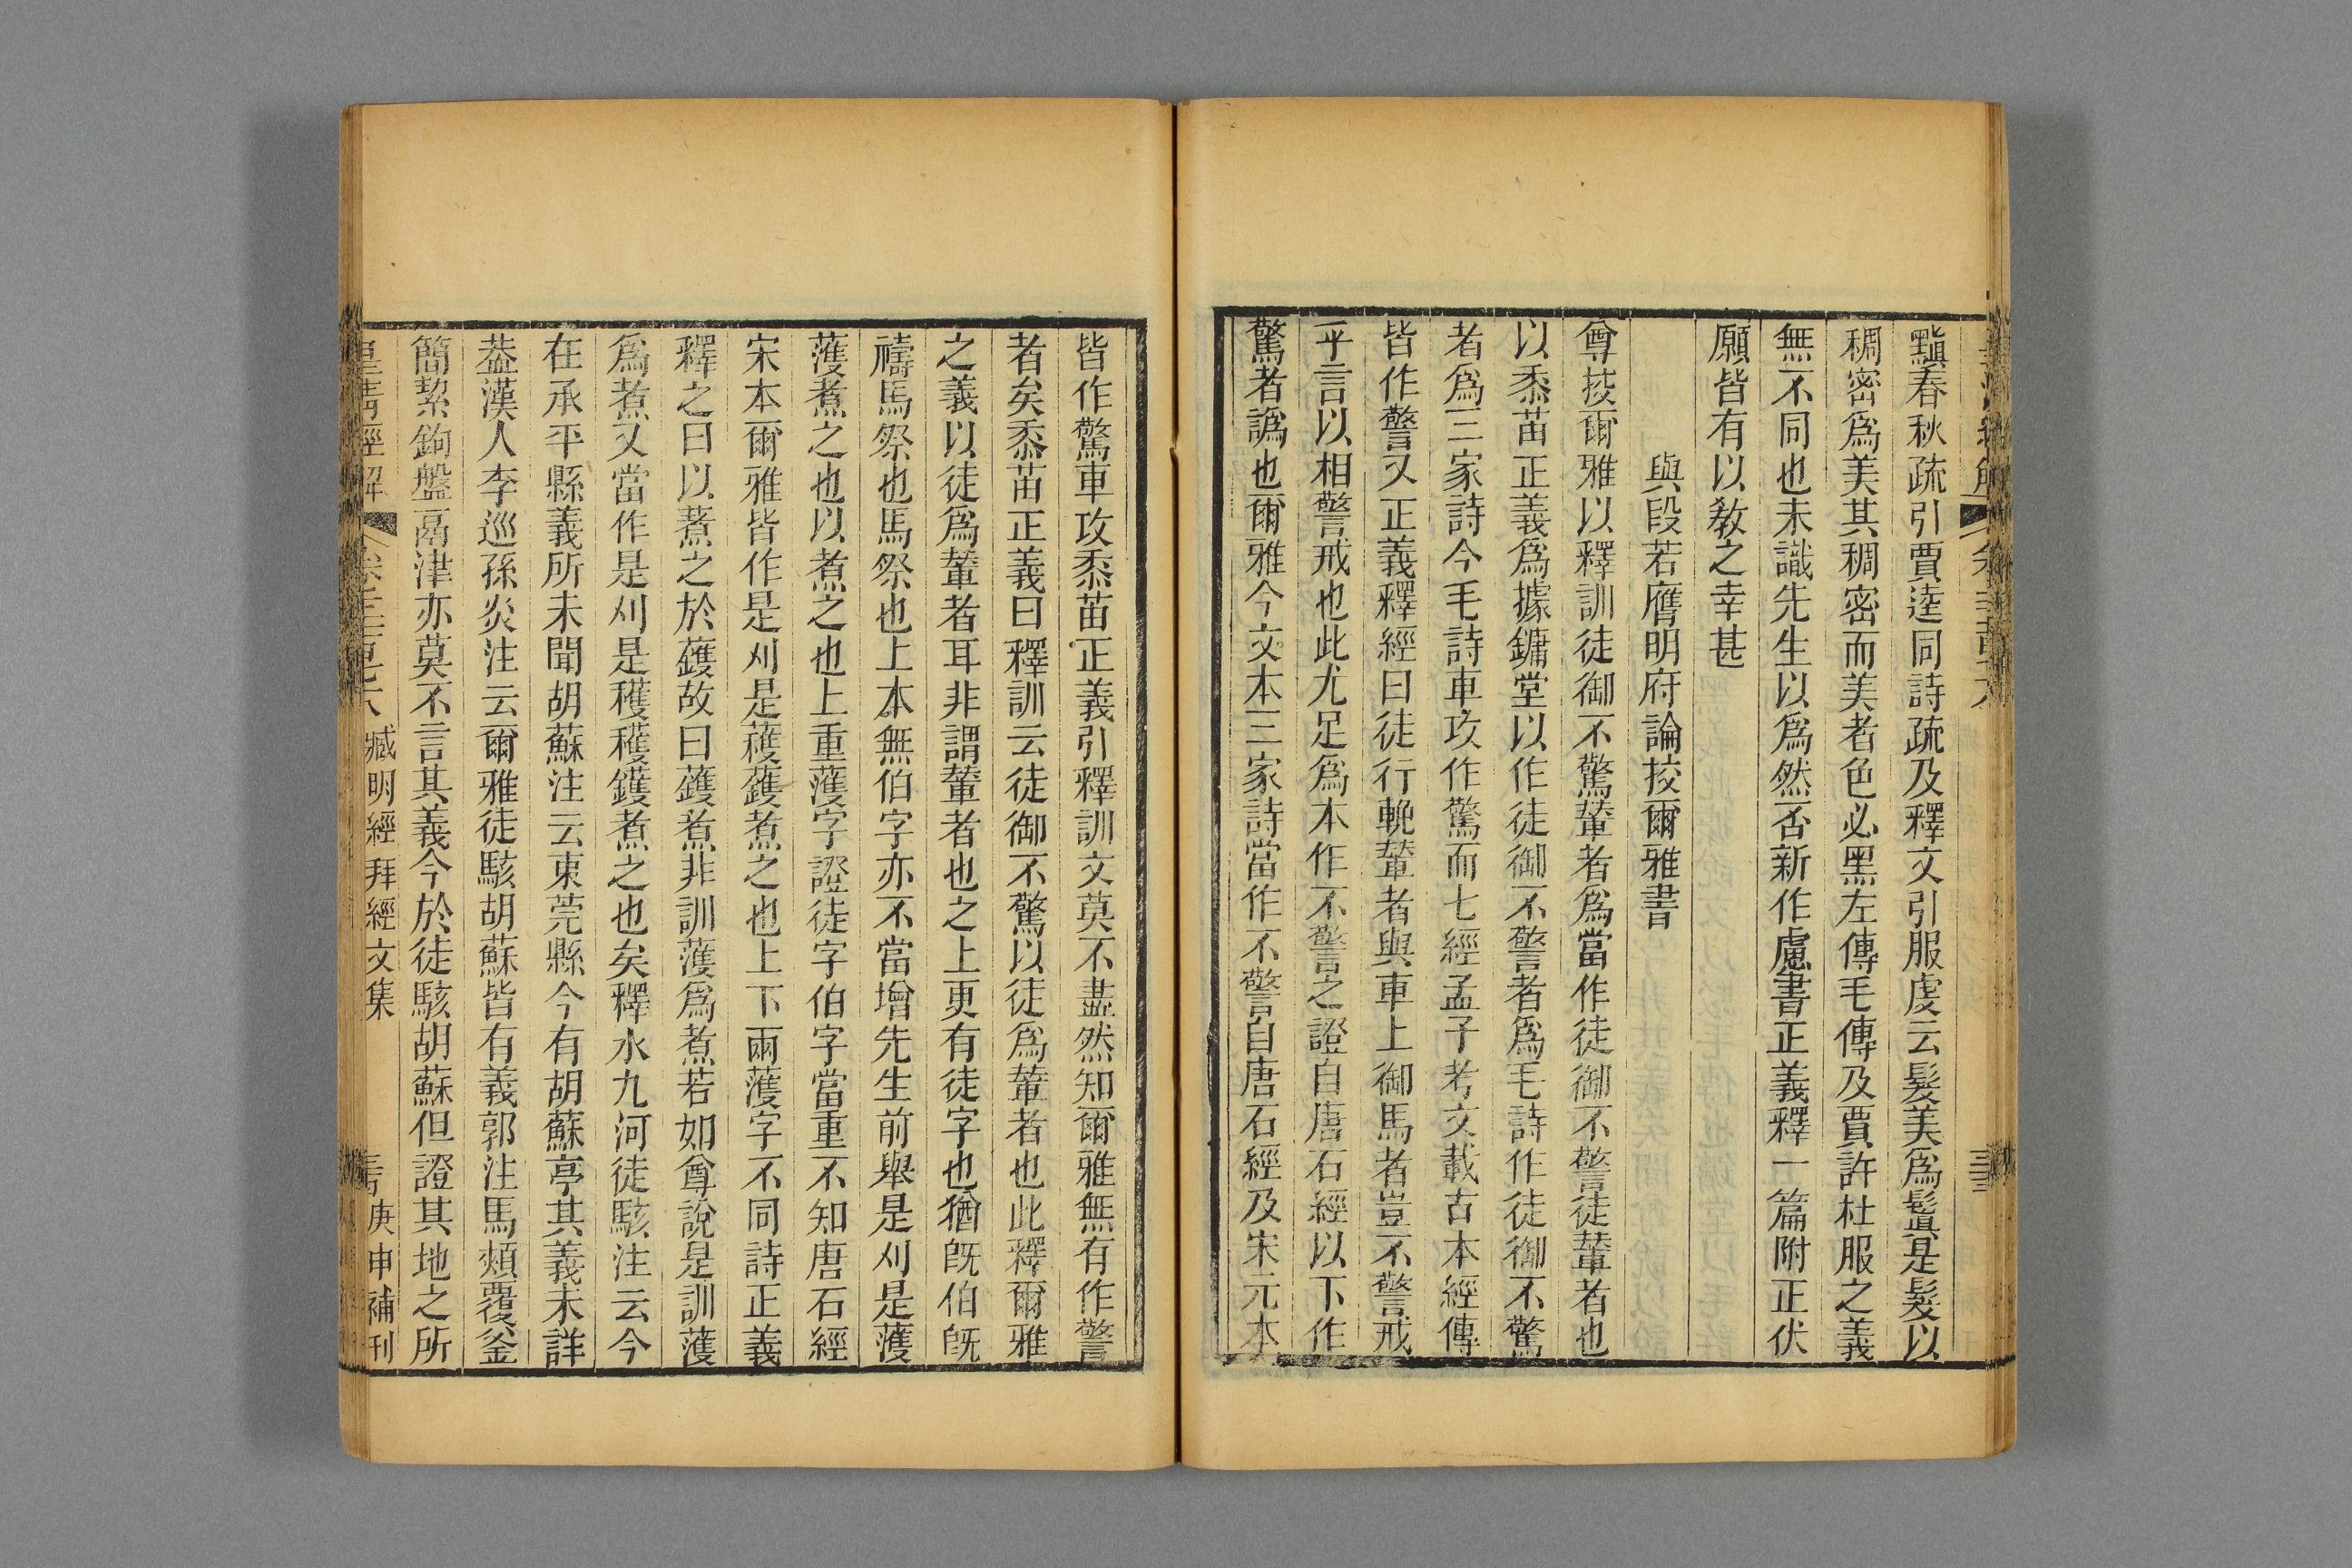 黰春秋疏引賈逵同詩疏及釋文引服虔云髮美爲鬒是髮以
稠密爲美其稠密而美者色必黑左傳毛傳及賈許杜服之義
無不同也未識先生以爲然否新作慮書正義釋一篇附正伏
願皆有以敎之幸甚
與段若膺明府論挍爾雅書
尊挍爾雅以釋訓徒御不驚輦者爲當作徒御不警徒輦者也
以黍苗正義爲據鏞堂以作徒御不警者爲毛詩作徒御不驚
者爲三家詩今毛詩車攻作驚而七經孟子考文載古本經傳
皆作警又正義釋經曰徒行輓輦者與車上御馬者豈不警戒
乎言以相警戒也此尤足爲本作不警之證自唐石經以下作
驚者譌也爾雅今文本三家詩當作不警自唐石經及宋元本
皆作驚車攻黍苗正義引釋訓文莫不盡然知爾雅無有作警
者矣黍苗正義曰釋訓云徒御不驚以徒爲輦者也此釋爾雅
之義以徒爲輦者耳非謂輦者也之上更有徒字也猶旣伯旣
禱馬祭也馬祭也上本無伯字亦不當增先生前舉是刈是濩
濩煮之也以煮之也上重濩字證徒字伯字當重不知唐石經
宋本爾雅皆作是刈是穫鑊煮之也上下兩濩字不同詩正義
釋之曰以煮之於鑊故曰鑊煮非訓濩爲煮若如尊說是訓濩
爲煮又當作是刈是穫穫鑊煮之也矣釋水九河徒駭注云今
在承平縣義所未聞胡蘇注云東莞縣今有胡蘇亭其義未詳
葢漢人李巡孫炎注云爾雅徒駭胡蘇皆有義郭注馬頰覆釜
簡絜鉤盤鬲津亦莫不言其義今於徒駭胡蘇但證其地之所
皇淸經解 臧明經拜經文集 庚申補刊